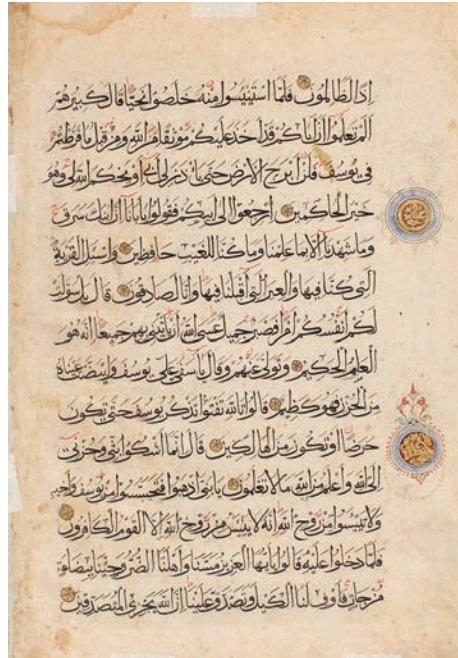 إذا لظالمون فلما استيئسوا منه خلصوا نجيا قال كبيرهم
ألم تعلموا أن أباكم قد أخذ عليكم موثقا من الله ومن قبل ما فرطتم
في يوسف فلن أبرح الأرض حتى يأذن لي أبي أو يحكم الله لي وهو
خير الحاكمين ارجعوا إلى أبيكم فقولوا يا أبانا إن ابنك سرق
وما شهدنا إلا بما علمنا وما كنا للغيب حافظين واسئل القرية
التي كنا فيها والعير التي أقبلنا فيها وإنا لصادقون قال بل سولت
لكم أنفسكم أمرا فصبر جميل عسى الله أن يأتيني بهم جميعا إنه هو
العليم الحكيم وتولى عنهم وقال يا أسفى على يوسف وابيضت عيناه
من الحزن فهو كظيم قالوا تالله تفتؤا تذكر يوسف حتى تكون
حرضا أو تكون من الهالكين قال إنما أشكوا بثي وحزني
إلى الله وأعلم من الله ما لا تعلمون يا بني اذهبوا فتحسسوا من يوسف وأخيه
ولا تيئسوا من روح الله إنه لا ييئس من روح الله إلا القوم الكافرون
فلما دخلوا عليه قالوا يا أيها العزيز مسنا وأهلنا الضر وجئنا ببضاعة
مزجاة فأوف لنا الكيل وتصدق علينا إن الله يجزي المتصدقين